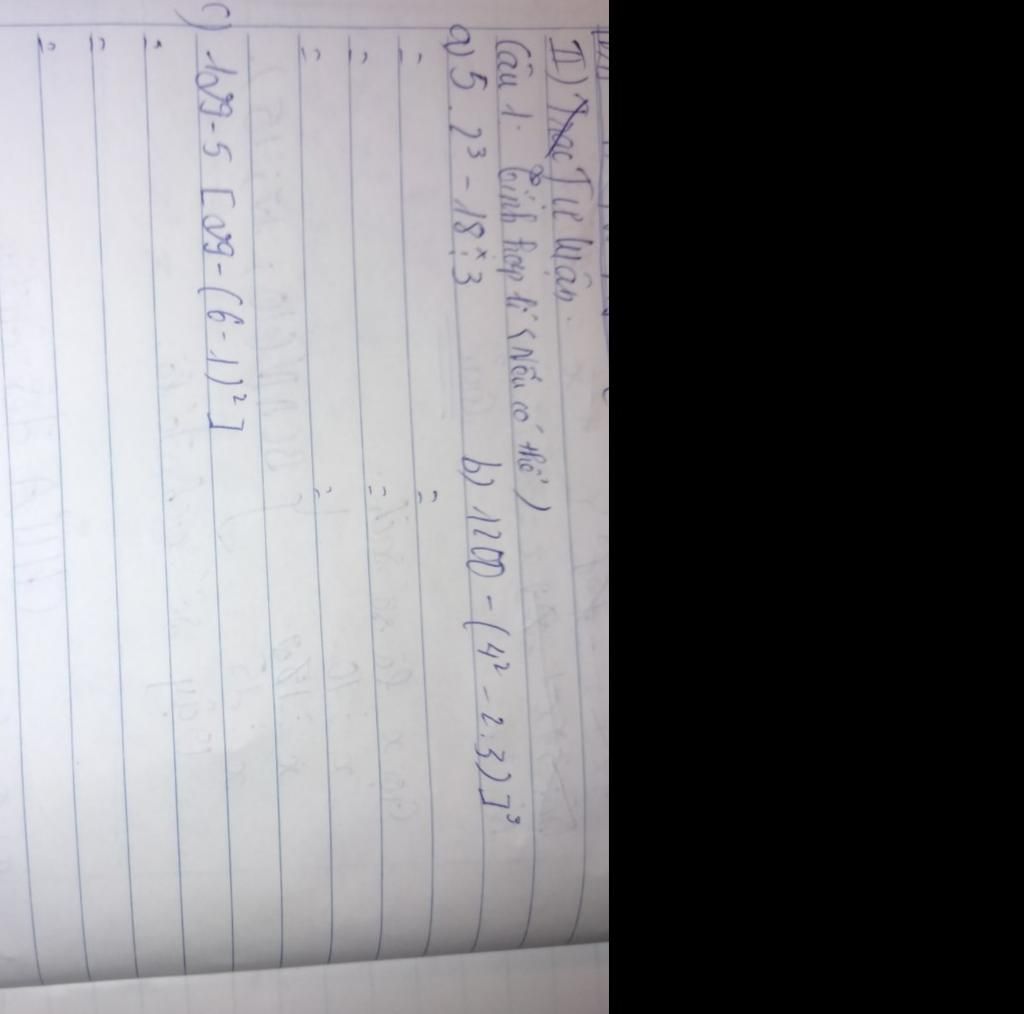 II) Tự luận.
Câu 1: Tính hợp lí (Nếu có thể)
a) 5 . 2³ - 18 : 3 b) 1200 - (4² - 2.3)]³
= =
= =
= =
c) - 5 [ - (6 - 1)²]
=
=
=